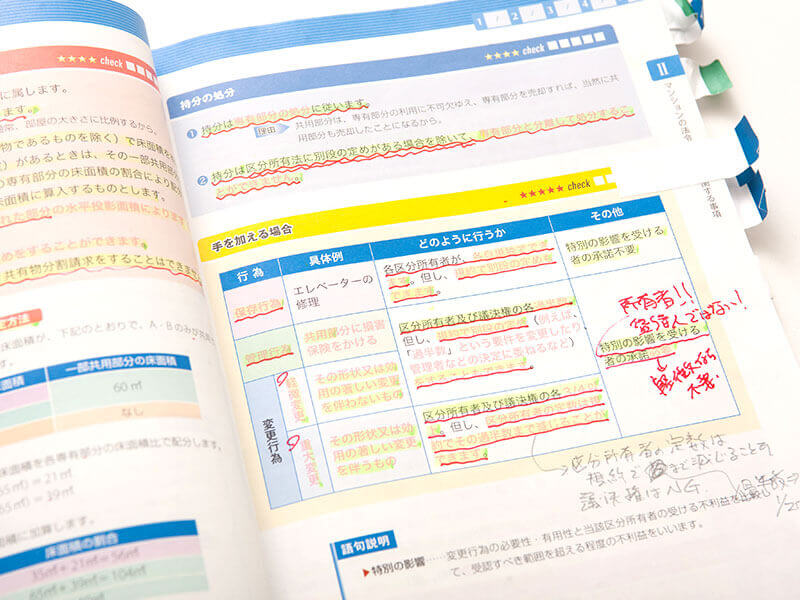 ★★★★ check
に属します。
通常、部屋の大きさに比例するから。
物であるものを除く）で床面積を
）があるときは、その一部共用部分
の専有部分の床面積の割合により配分
床面積に算入するものとします。
れた部分の水平投影面積によります
めをすることができます。
共有物分割請求をすることはできません
床面積が、下記のとおりで、A・Bのみが共用
床面積
一部共用部分の床面積
60㎡
なし
床面積を各専有部分の床面積比で配分します。
65㎡）＝21㎡
65㎡）＝39㎡
面積に加算します。
床面積の割合
35㎡＋21㎡＝56㎡
65㎡＋39㎡＝104㎡
1 2 3 4 5
★★★★ check
持分の処分
❶ 持分は専有部分の処分に従います。
理由 共用部分は、専有部分の利用に不可欠ゆえ、専有部分を売却すれば、当然に共
用部分も売却したことになるから。
❷ 持分は区分所有法に別段の定めがある場合を除いて、専有部分と分離して処分するこ
とができません。
★★★★★ check
手を加える場合
行 為
具体例
どのように行うか
その他
保存行為
エレベーターの
修理
各区分所有者が、各自単独でできま
す。但し、規約で別段の定めも
できます。
特別の影響を受ける
者の承諾不要
管理行為
共用部分に損害
保険をかける
区分所有者及び議決権の各過半数
但し、規約で別段の定め（例えば、
「過半数」という要件を変更したり
管理者などの決定に委ねるなど）
をすることもできます。
変更行為
軽微変更
その形状又は効
用の著しい変更
を伴わないもの
重大変更
その形状又は効
用の著しい変更
を伴うもの
区分所有者及び議決権の各3/4以上
但し、区分所有者の定数は規
約でその過半数まで減じることが
できます。
所有者!!
特別の影響を受ける
者の承諾必要
不要
区分所有者の定数は
規約で まで減じることOK
議決権はNG.
語句説明
▶特別の影響……変更行為の必要性・有用性と当該区分所有者の受ける不利益を比較し
て、受認すべき範囲を超える程度の不利益をいいます。
Ⅱ
マンションの法令
関する事項